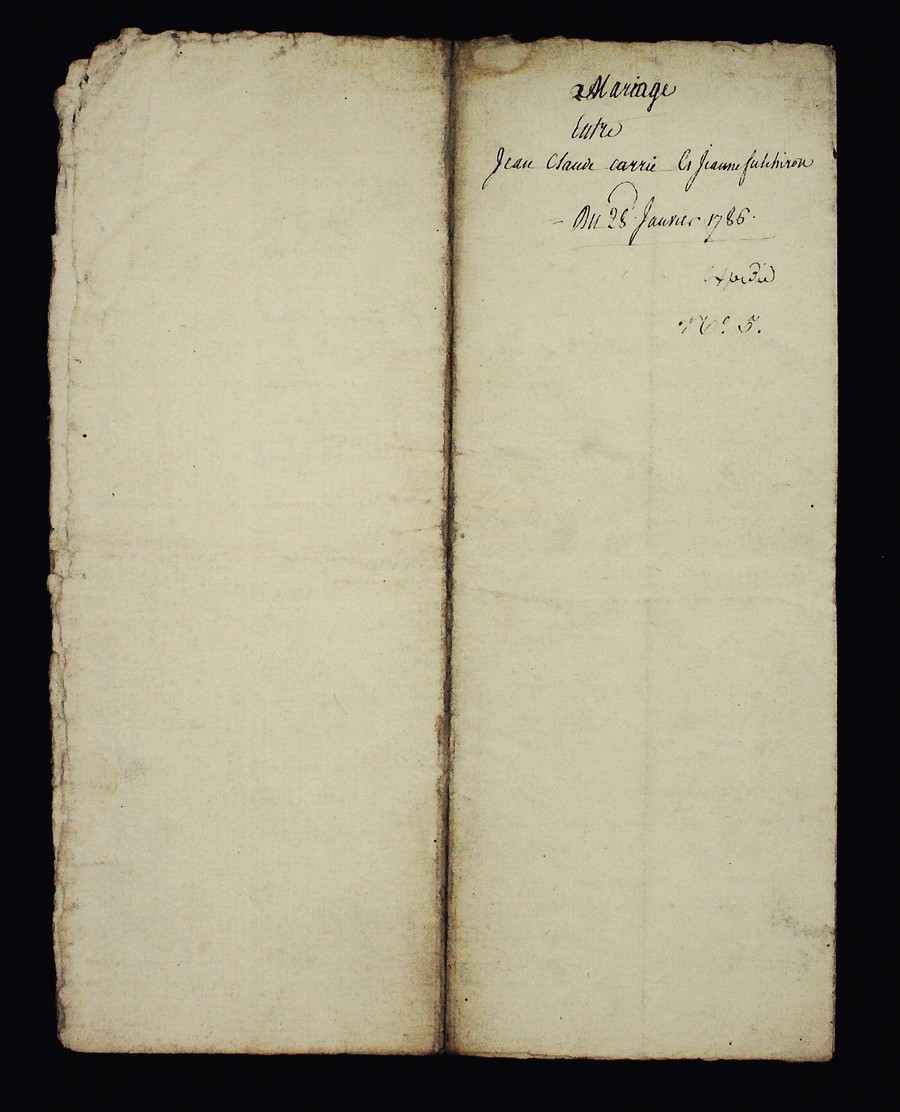 Mariage
Entre
Jean Claude carrié Et Jeanne futchiron
Du 28 Janvier 1786.
Expedié
N.° 5.